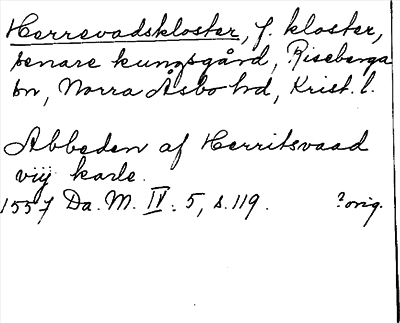 Herrevadskloster, f. kloster,
senare kungsgård, Riseberga
sn, Norra Åsbo hd, Krist. l.
Abboden af Herritsvaad
viij karle.
1557 Da. M. IV: 5, s. 119. ? orig.